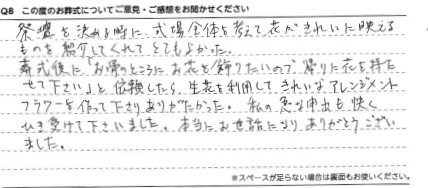 Q8 この度のお葬式についてご意見・ご感想をお聞かせください
祭壇を決める時に、式場全体を考えて花がきれいに映える
ものを紹介してくれてとてもよかった。
葬式後に「お骨のところにお花を飾りたいので帰りに花を持た
せて下さい」と依頼したら、生花を利用してきれいなアレンジメント
フラワーを作って下さりありがたかった。私の急な申出も快く
ひき受けて下さいました。本当にお世話になりありがとうござい
ました。
※スペースが足らない場合は裏面もお使いください。